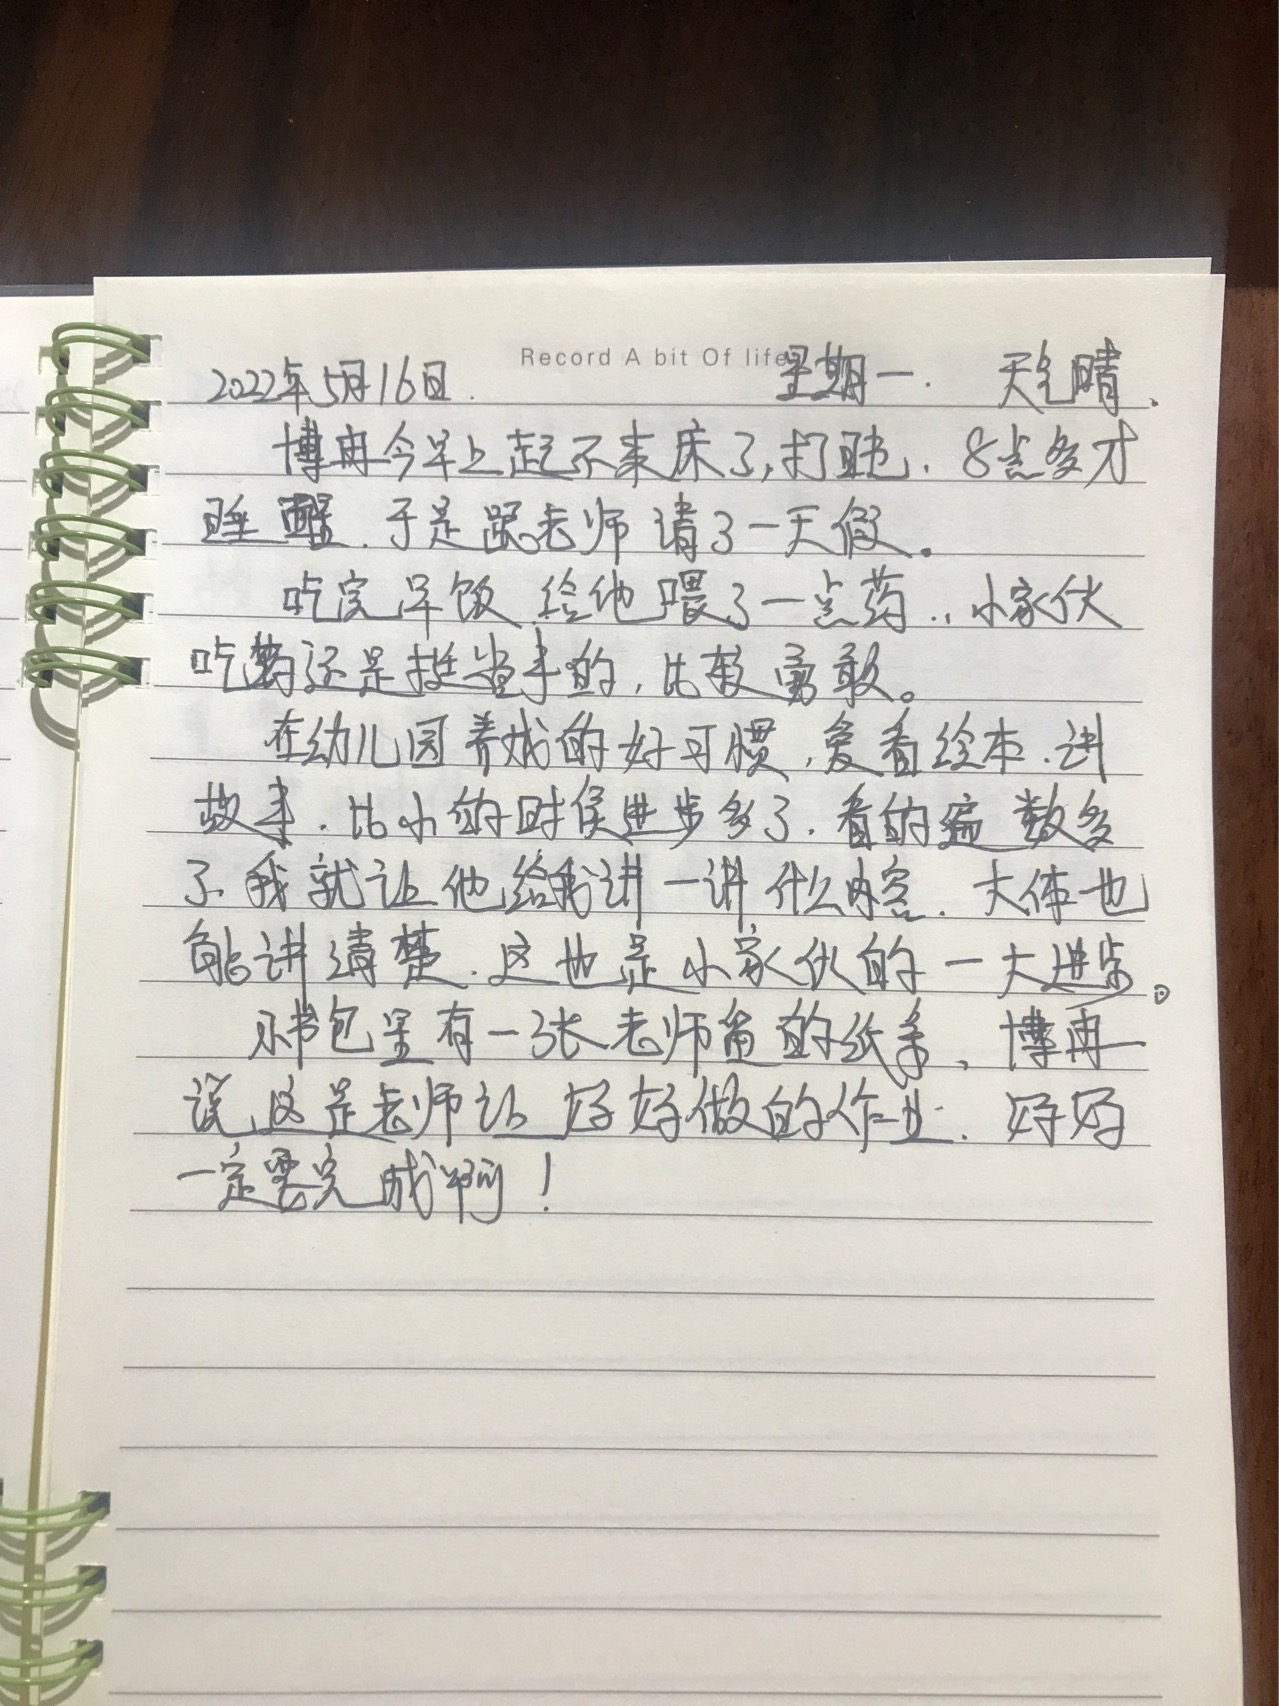 Record A bit Of life
2022年5月16日. 星期一. 天气晴.
博冉今早上起不来床了,打盹.8点多才
睡醒.于是跟老师请了一天假。
吃完早饭.给他喂了一点药..小家伙
吃药还是挺拿手的,比较勇敢。
在幼儿园养成的好习惯,爱看绘本.讲
故事.比小的时侯进步多了.看的遍数多
了.我就让他给我讲一讲什么内容.大体也
能讲清楚.这也是小家伙的一大进步。
书包里有一张老师留的纸条、博冉
说这是老师让好好做的作业.好好
一定要完成啊!